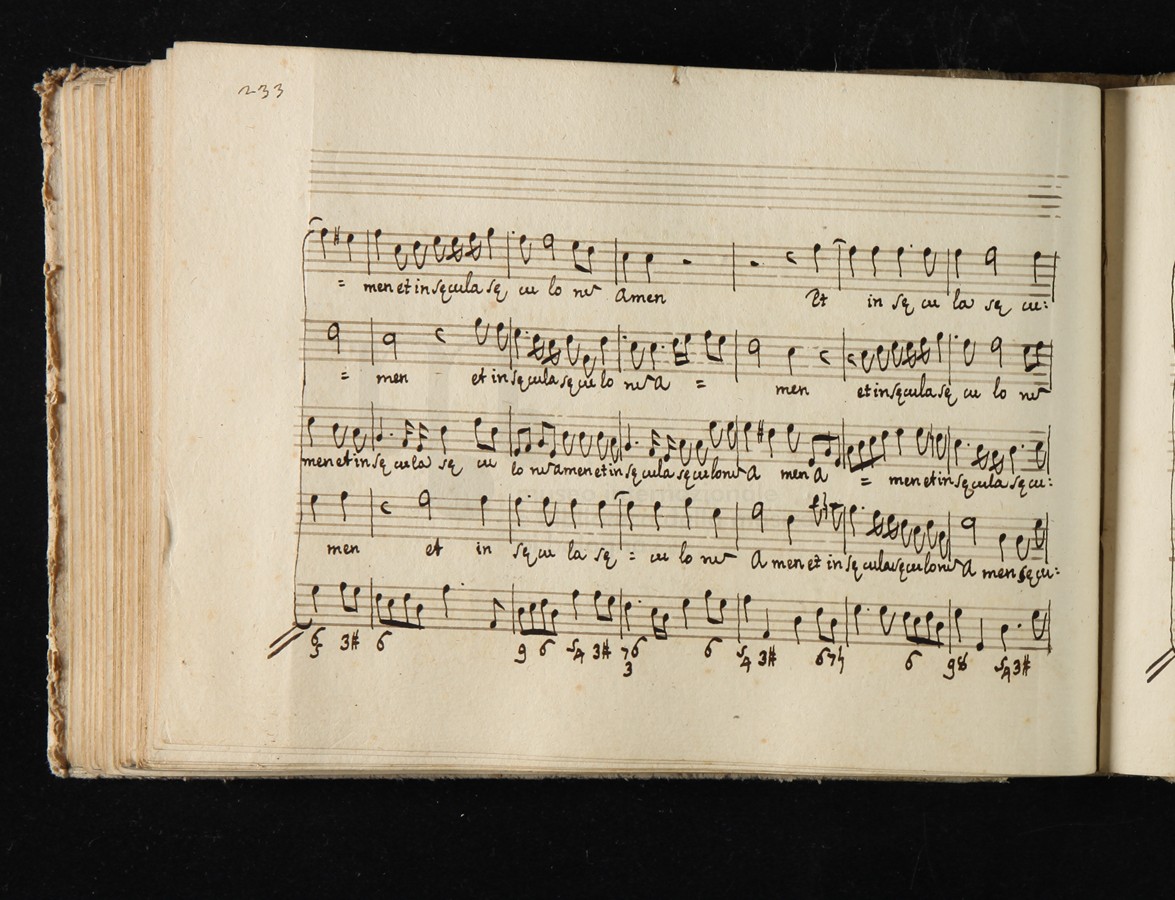 233
= men et in sęcula sę cu lo ruʒ Amen Et in sę cu la sę cu:
= men et in sęcula sę cu lo ruʒ A = men et in sęcula sę cu lo ruʒ
men et in sę cu la sę cu lo ruʒ amen et in sę cula sę cu loruʒ A men A = men et in sęcula sę cu:
men et in sę cu la sę = cu lo ruʒ A men et in sę cula sęculoruʒ A men sęcu:
6 5 3# 6 9 6 5 4 3# 7 6 3 6 5 4 3# 6 7♮ 6 9 8 5 4 3#